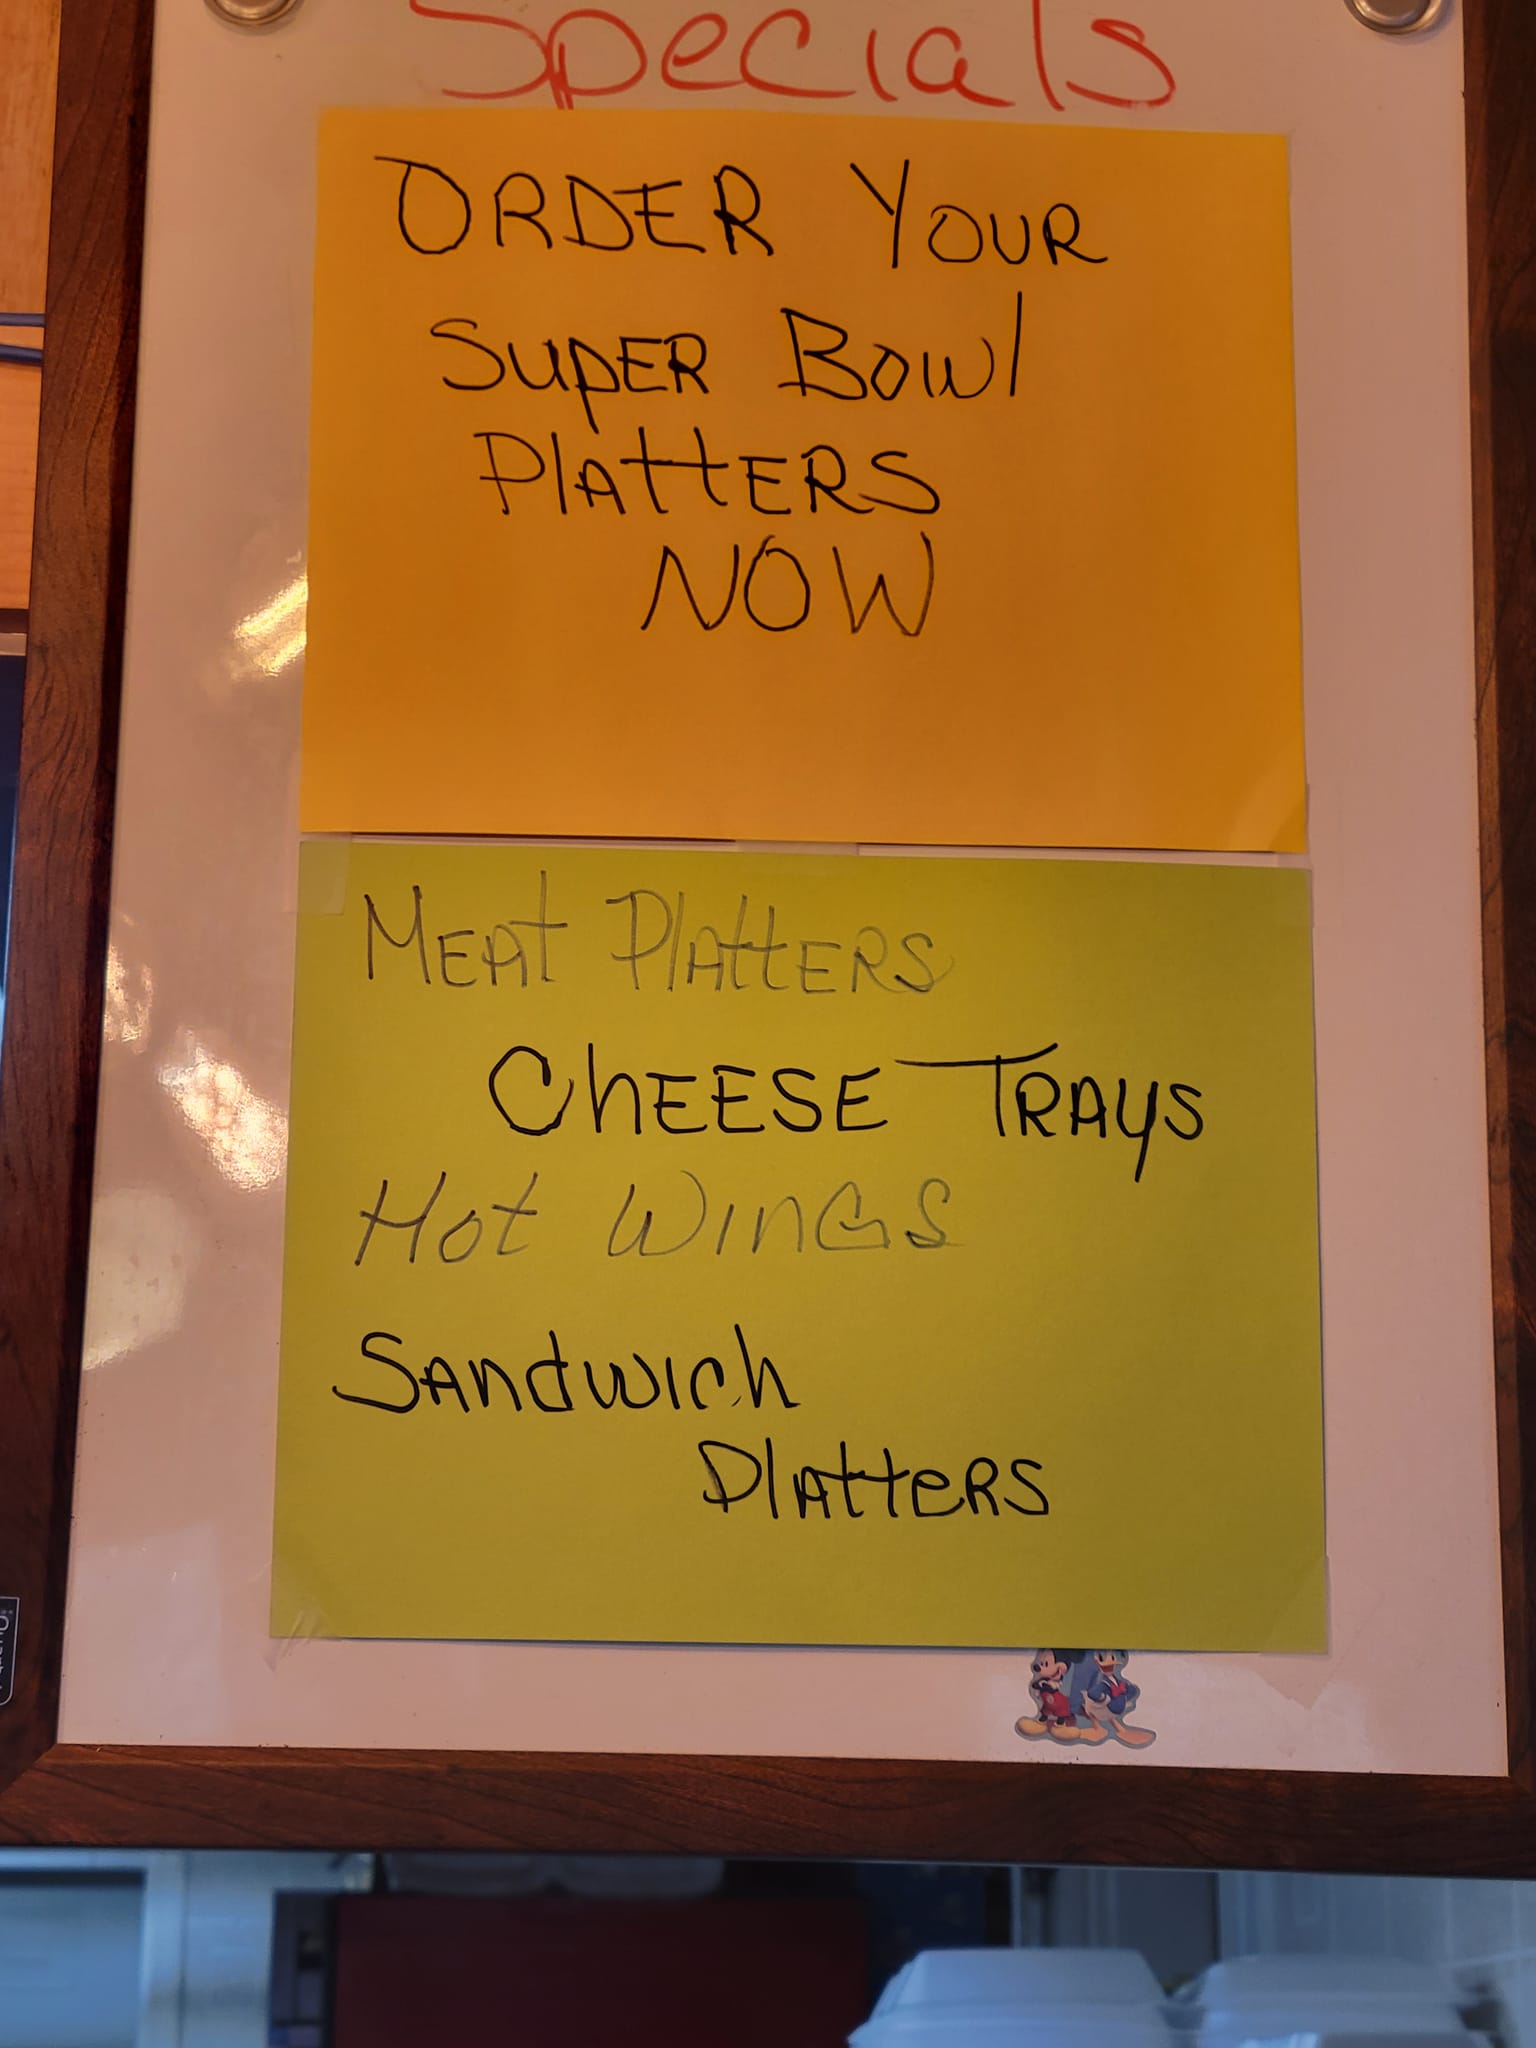 Specials
ORDER YOUR
SUPER BOWl
PlAttERS
NOW
MEAt PlAttERS
ChEESE TRAyS
Hot WinGS
SAndwich
PlAtteRS